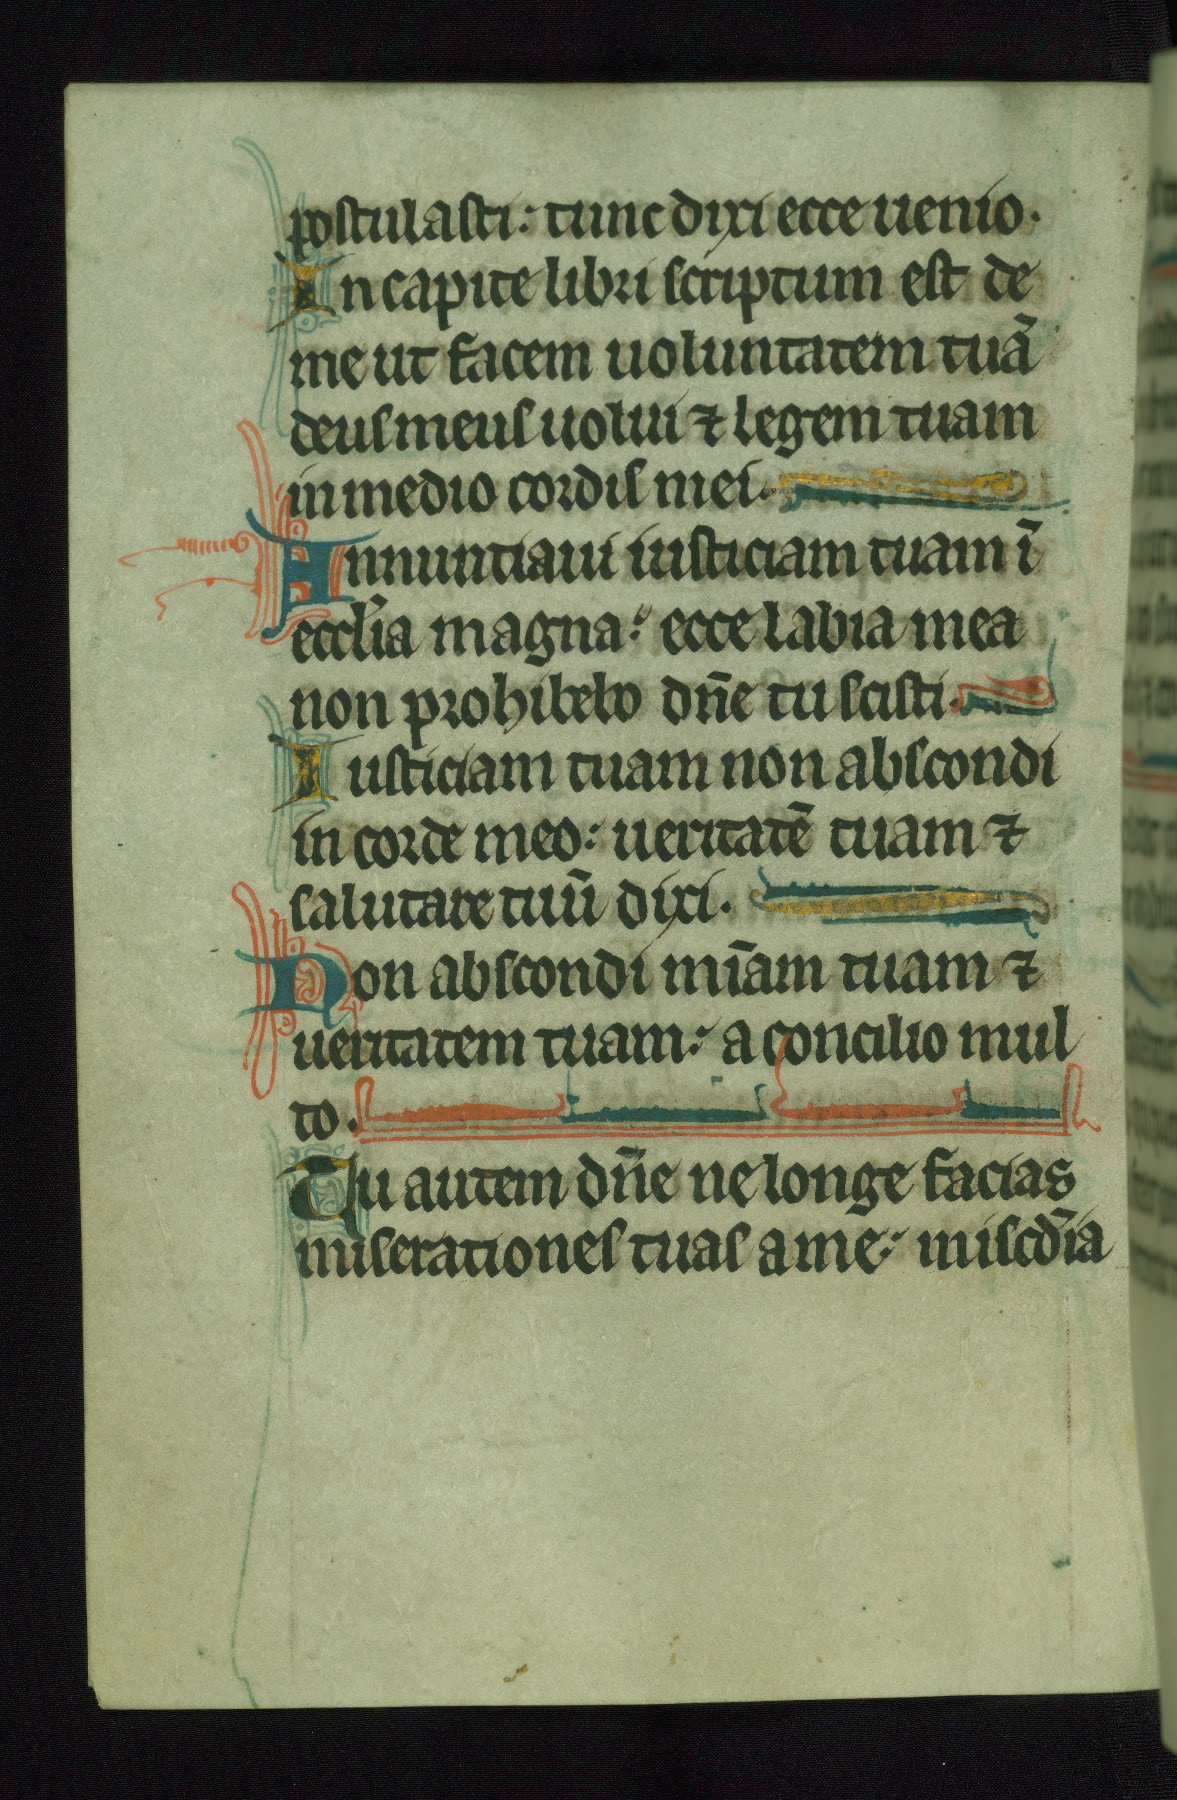 postulasti: tunc dixi ecce uenio.
In capite libri scriptum est de
me ut facem uoluntatem tuā
deus meus uolui ⁊ legem tuam
in medio cordis mei.
Annuntiaui iusticiam tuam ī
eccl̄ia magna: ecce labia mea
non prohibebo dn̄e tu scisti.
Iusticiam tuam non abscondi
in corde meo: ueritatē tuam ⁊
salutare tuū dixi.
Non abscondi mīam tuam ⁊
ueritatem tuam: a concilio mul
to.
Tu autem dn̄e ne longe facias
miserationes tuas a me: miscd̄ia